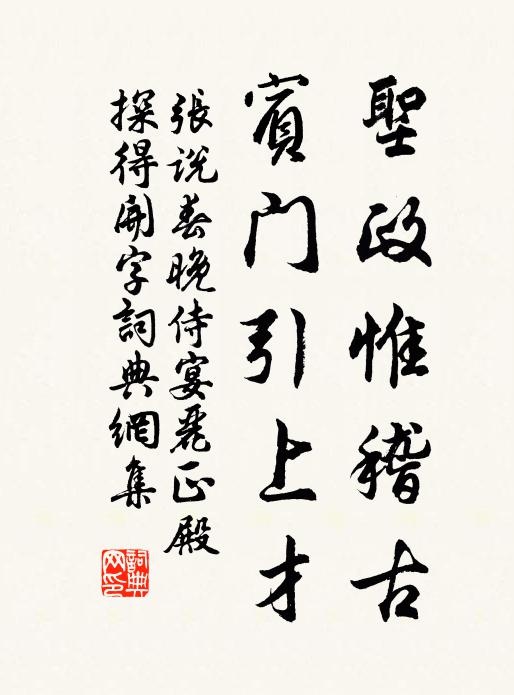 聖政惟稽古
賓門引上才
張說春晚侍宴麗正殿
探得開字詞典網集
詞典網印